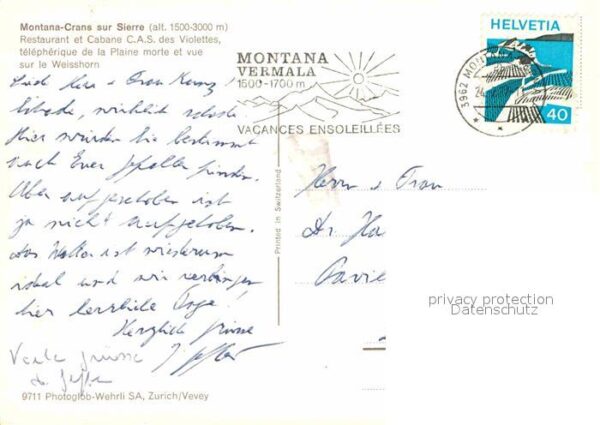 Montana-Crans sur Sierre (alt. 1500-3000 m)
Restaurant et Cabane C.A.S. des Violettes,
téléphérique de la Plaine morte et vue
sur le Weisshorn
HELVETIA
40
3962 MONTANA
24.
MONTANA
VERMALA
1500-1700 m
VACANCES ENSOLEILLÉES
Herr + Frau
schade, wirklich schade!
Hier würden Sie bestimmt
auch Euer Gefallen finden.
Aber aufgeschoben ist
ja nicht aufgehoben.
Das Wetter ist wiederum
ideal und wir verbringen
hier herrliche Tage!
Herzlich grüsse
grüsse
Printed in Switzerland
Herrn + Frau
Dr. Ha
privacy protection
Datenschutz
9711 Photoglob-Wehrli SA, Zurich/Vevey